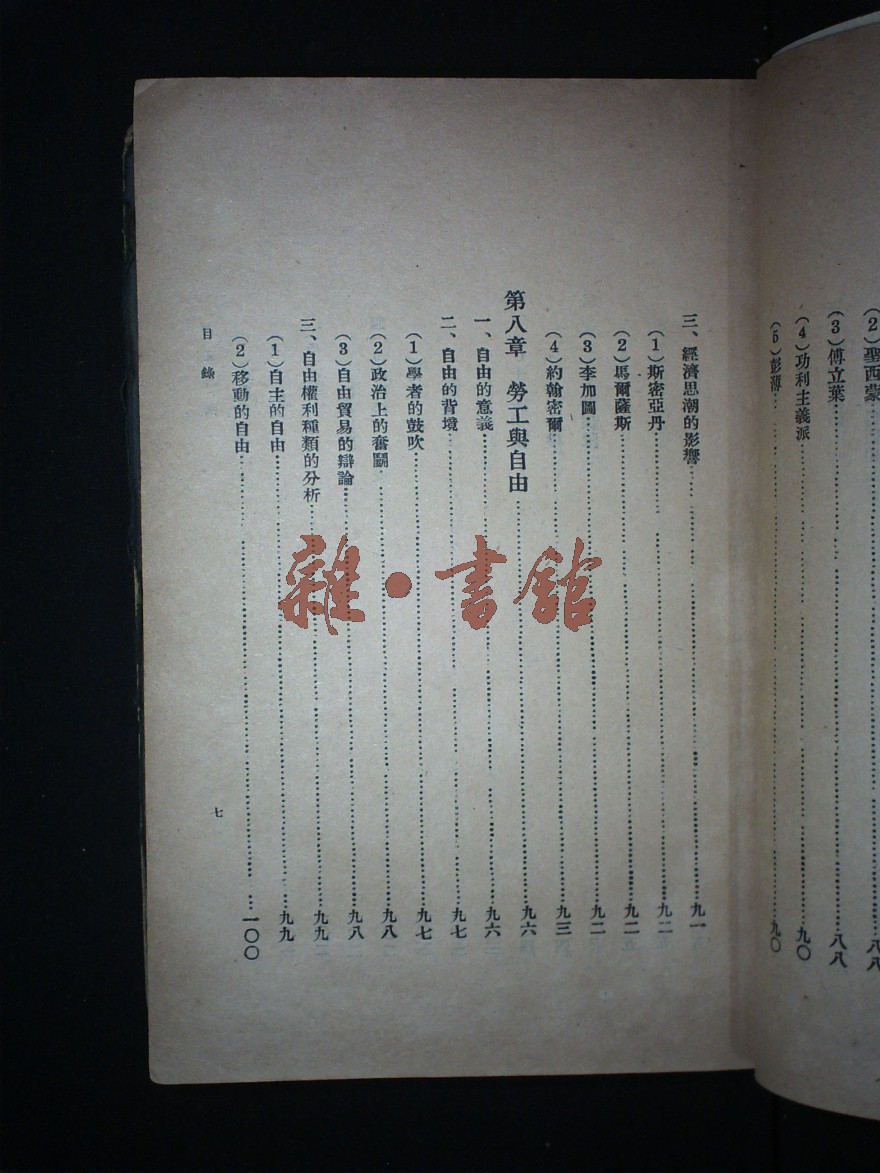 (2)聖西蒙……八八
(3)傅立葉……八八
(4)功利主義派……九〇
(5)彭薄……九〇
三、經濟思潮的影響……九一
(1)斯密亞丹……九二
(2)馬爾薩斯……九二
(3)李加圖……九二
(4)約翰密爾……九三
第八章 勞工與自由……九六
一、自由的意義……九六
二、自由的背境……九七
(1)學者的鼓吹……九七
(2)政治上的奮鬪……九八
(3)自由貿易的辯論……九八
三、自由權利種類的分析……九九
(1)自主的自由……九九
(2)移動的自由……一〇〇
目錄
七
雜·書館